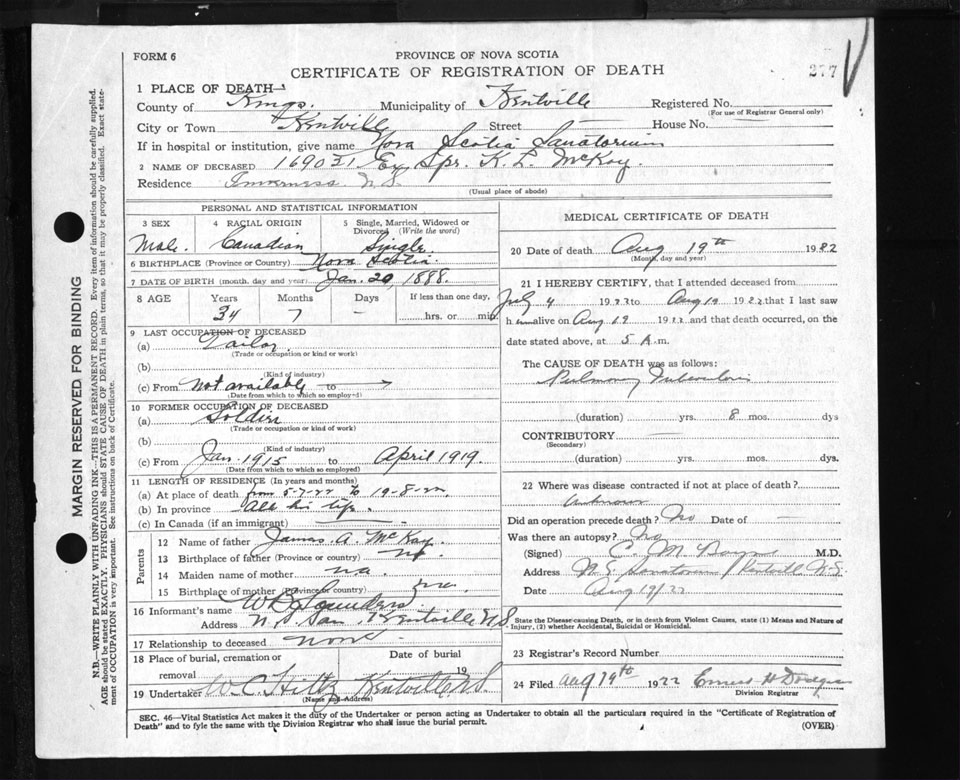 FORM 6
PROVINCE OF NOVA SCOTIA
CERTIFICATE OF REGISTRATION OF DEATH
277
1 PLACE OF DEATH—
County of Kings. Municipality of Kentville Registered No.
(For use of Registrar General only)
City or Town Kentville Street — House No.
If in hospital or institution, give name Nova Scotia Sanatorium
2 NAME OF DECEASED 169031 Ex Spr. K. L. McKay.
Residence Inverness N.S.
(Usual place of abode)
PERSONAL AND STATISTICAL INFORMATION
3 SEX 4 RACIAL ORIGIN 5 Single, Married, Widowed or Divorced (Write the word)
Male. Canadian Single.
6 BIRTHPLACE (Province or Country) Nova Scotia.
7 DATE OF BIRTH (month, day and year) Jan. 20 1888.
8 AGE Years Months Days If less than one day,
34 7 — hrs. or min.
9 LAST OCCUPATION OF DECEASED
(a) Tailor
(Trade or occupation or kind or work)
(b)
(Kind of industry)
(c) From not available to
(Date from which to which so employed)
10 FORMER OCCUPATION OF DECEASED
(a) Soldier
(Trade or occupation or kind of work)
(b)
(Kind of industry)
(c) From Jan. 1915 to April 1919.
(Date from which to which so employed)
11 LENGTH OF RESIDENCE (In years and months)
(a) At place of death from 5-7-22 to 19-8-22
(b) In province All his life.
(c) In Canada (if an immigrant) —
Parents
12 Name of father James. A. McKay.
13 Birthplace of father (Province or country)
14 Maiden name of mother na.
15 Birthplace of mother (Province or country) na.
16 Informant's name W D Saunders
Address N. S San, Kentville N S
17 Relationship to deceased none
18 Place of burial, cremation or removal Date of burial 19
19 Undertaker W. C. Hiltz Kentville N S.
(Name and Address)
MEDICAL CERTIFICATE OF DEATH
20 Date of death Aug 19th 1922
(Month, day and year)
21 I HEREBY CERTIFY, that I attended deceased from
July 4 1922 to Aug 19 1922 that I last saw
him alive on Aug 19 1922 and that death occurred, on the
date stated above, at 5 A.m.
The CAUSE OF DEATH was as follows:
Pulmonary Tuberculosis
(duration) yrs. 8 mos. dys
CONTRIBUTORY —
(Secondary)
(duration) yrs. mos. dys.
22 Where was disease contracted if not at place of death?
Unknown
Did an operation precede death? No Date of —
Was there an autopsy? No
(Signed) C. M. Bayne M.D.
Address N. S. Sanatorium / Kentville N.S.
Date Aug 19/22
State the Disease-causing Death, or in death from Violent Causes, state (1) Means and Nature of Injury, (2) whether Accidental, Suicidal or Homicidal.
23 Registrar's Record Number
24 Filed Aug 19th 1922 Ernest H
Division Registrar
SEC. 46—Vital Statistics Act makes it the duty of the Undertaker or person acting as Undertaker to obtain all the particulars required in the "Certificate of Registration of
Death" and to fyle the same with the Division Registrar who shall issue the burial permit. (OVER)
MARGIN RESERVED FOR BINDING
N.B.—WRITE PLAINLY WITH UNFADING INK—THIS IS A PERMANENT RECORD. Every item of information should be carefully supplied.
AGE should be stated EXACTLY. PHYSICIANS should STATE CAUSE OF DEATH in plain terms, so that it may be properly classified. Exact state-
ment of OCCUPATION is very important. See instructions on back of Certificate.